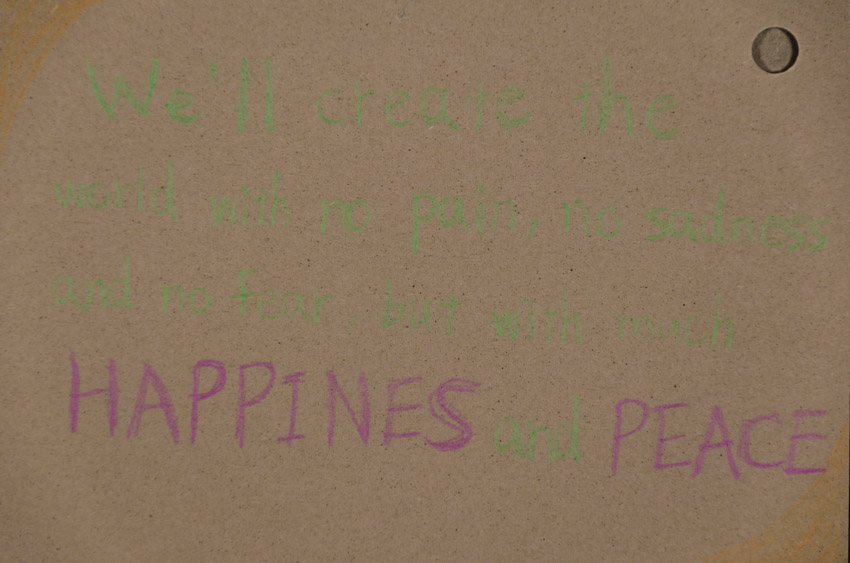 We'll create the
world with no pain, no sadness
and no fear, but with much
HAPPINES and PEACE